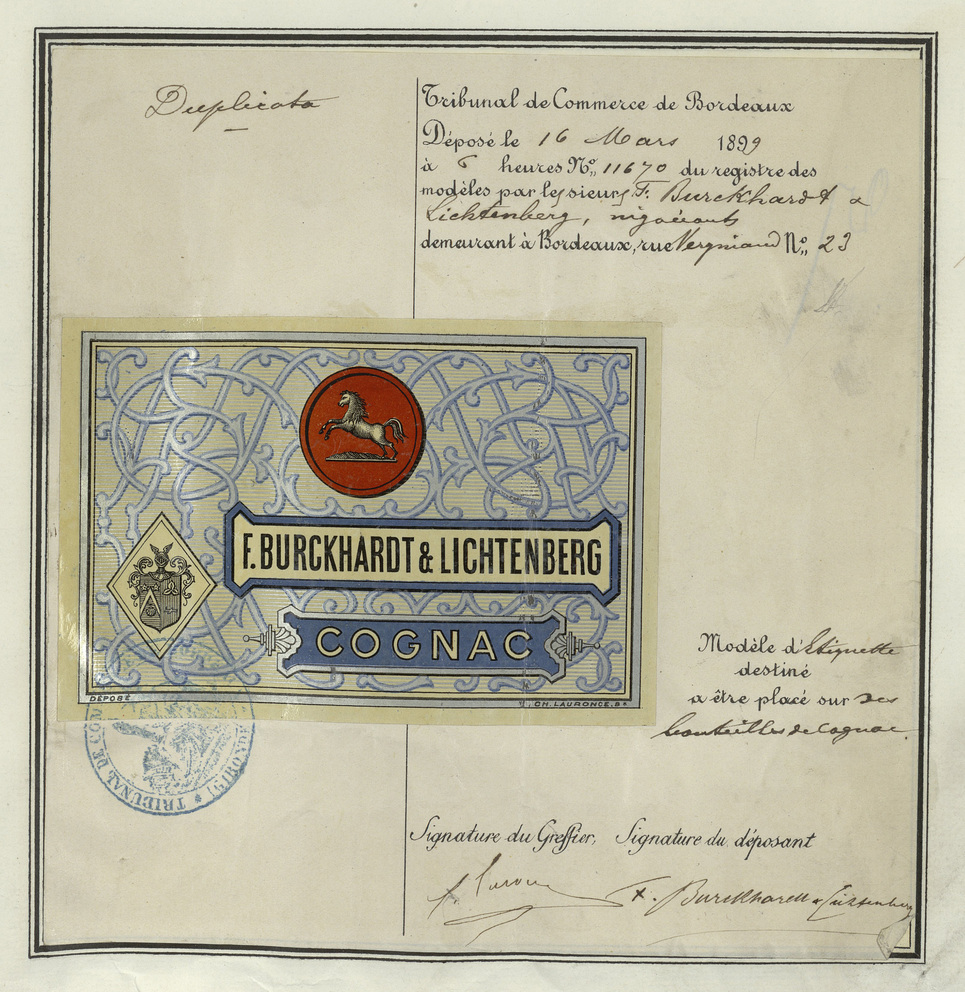 Duplicata
Tribunal de Commerce de Bordeaux
Déposé le 16 Mars 1899
à 6 heures No. 11670 du registre des
modèles par les sieurs F. Burckhardt &
Lichtenberg, négociants
demeurant à Bordeaux, rue Vergniaud No. 23
F. BURCKHARDT & LICHTENBERG
COGNAC
DÉPOSÉ
CH. LAURONCE. Bx
Modèle d'Etiquette
destiné
a être placé sur des
bouteilles de Cognac.
TRIBUNAL DE COM
Signature du Greffier, Signature du déposant
F. Burckhardt & Lichtenberg